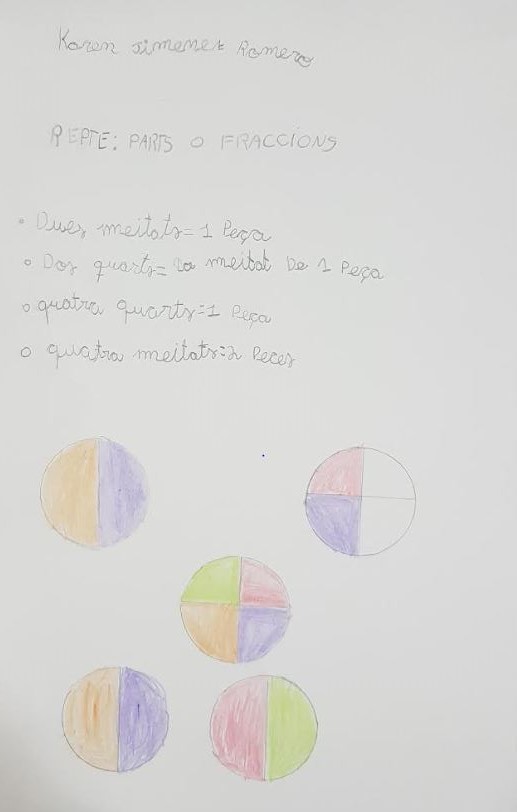 Karen Jimenez Romero
REPTE: PARTS O FRACCIONS
Dues meitats=1 Peça
Dos quarts= la meitat De 1 Peça
quatra quarts=1 Peça
quatra meitats=2 Peces